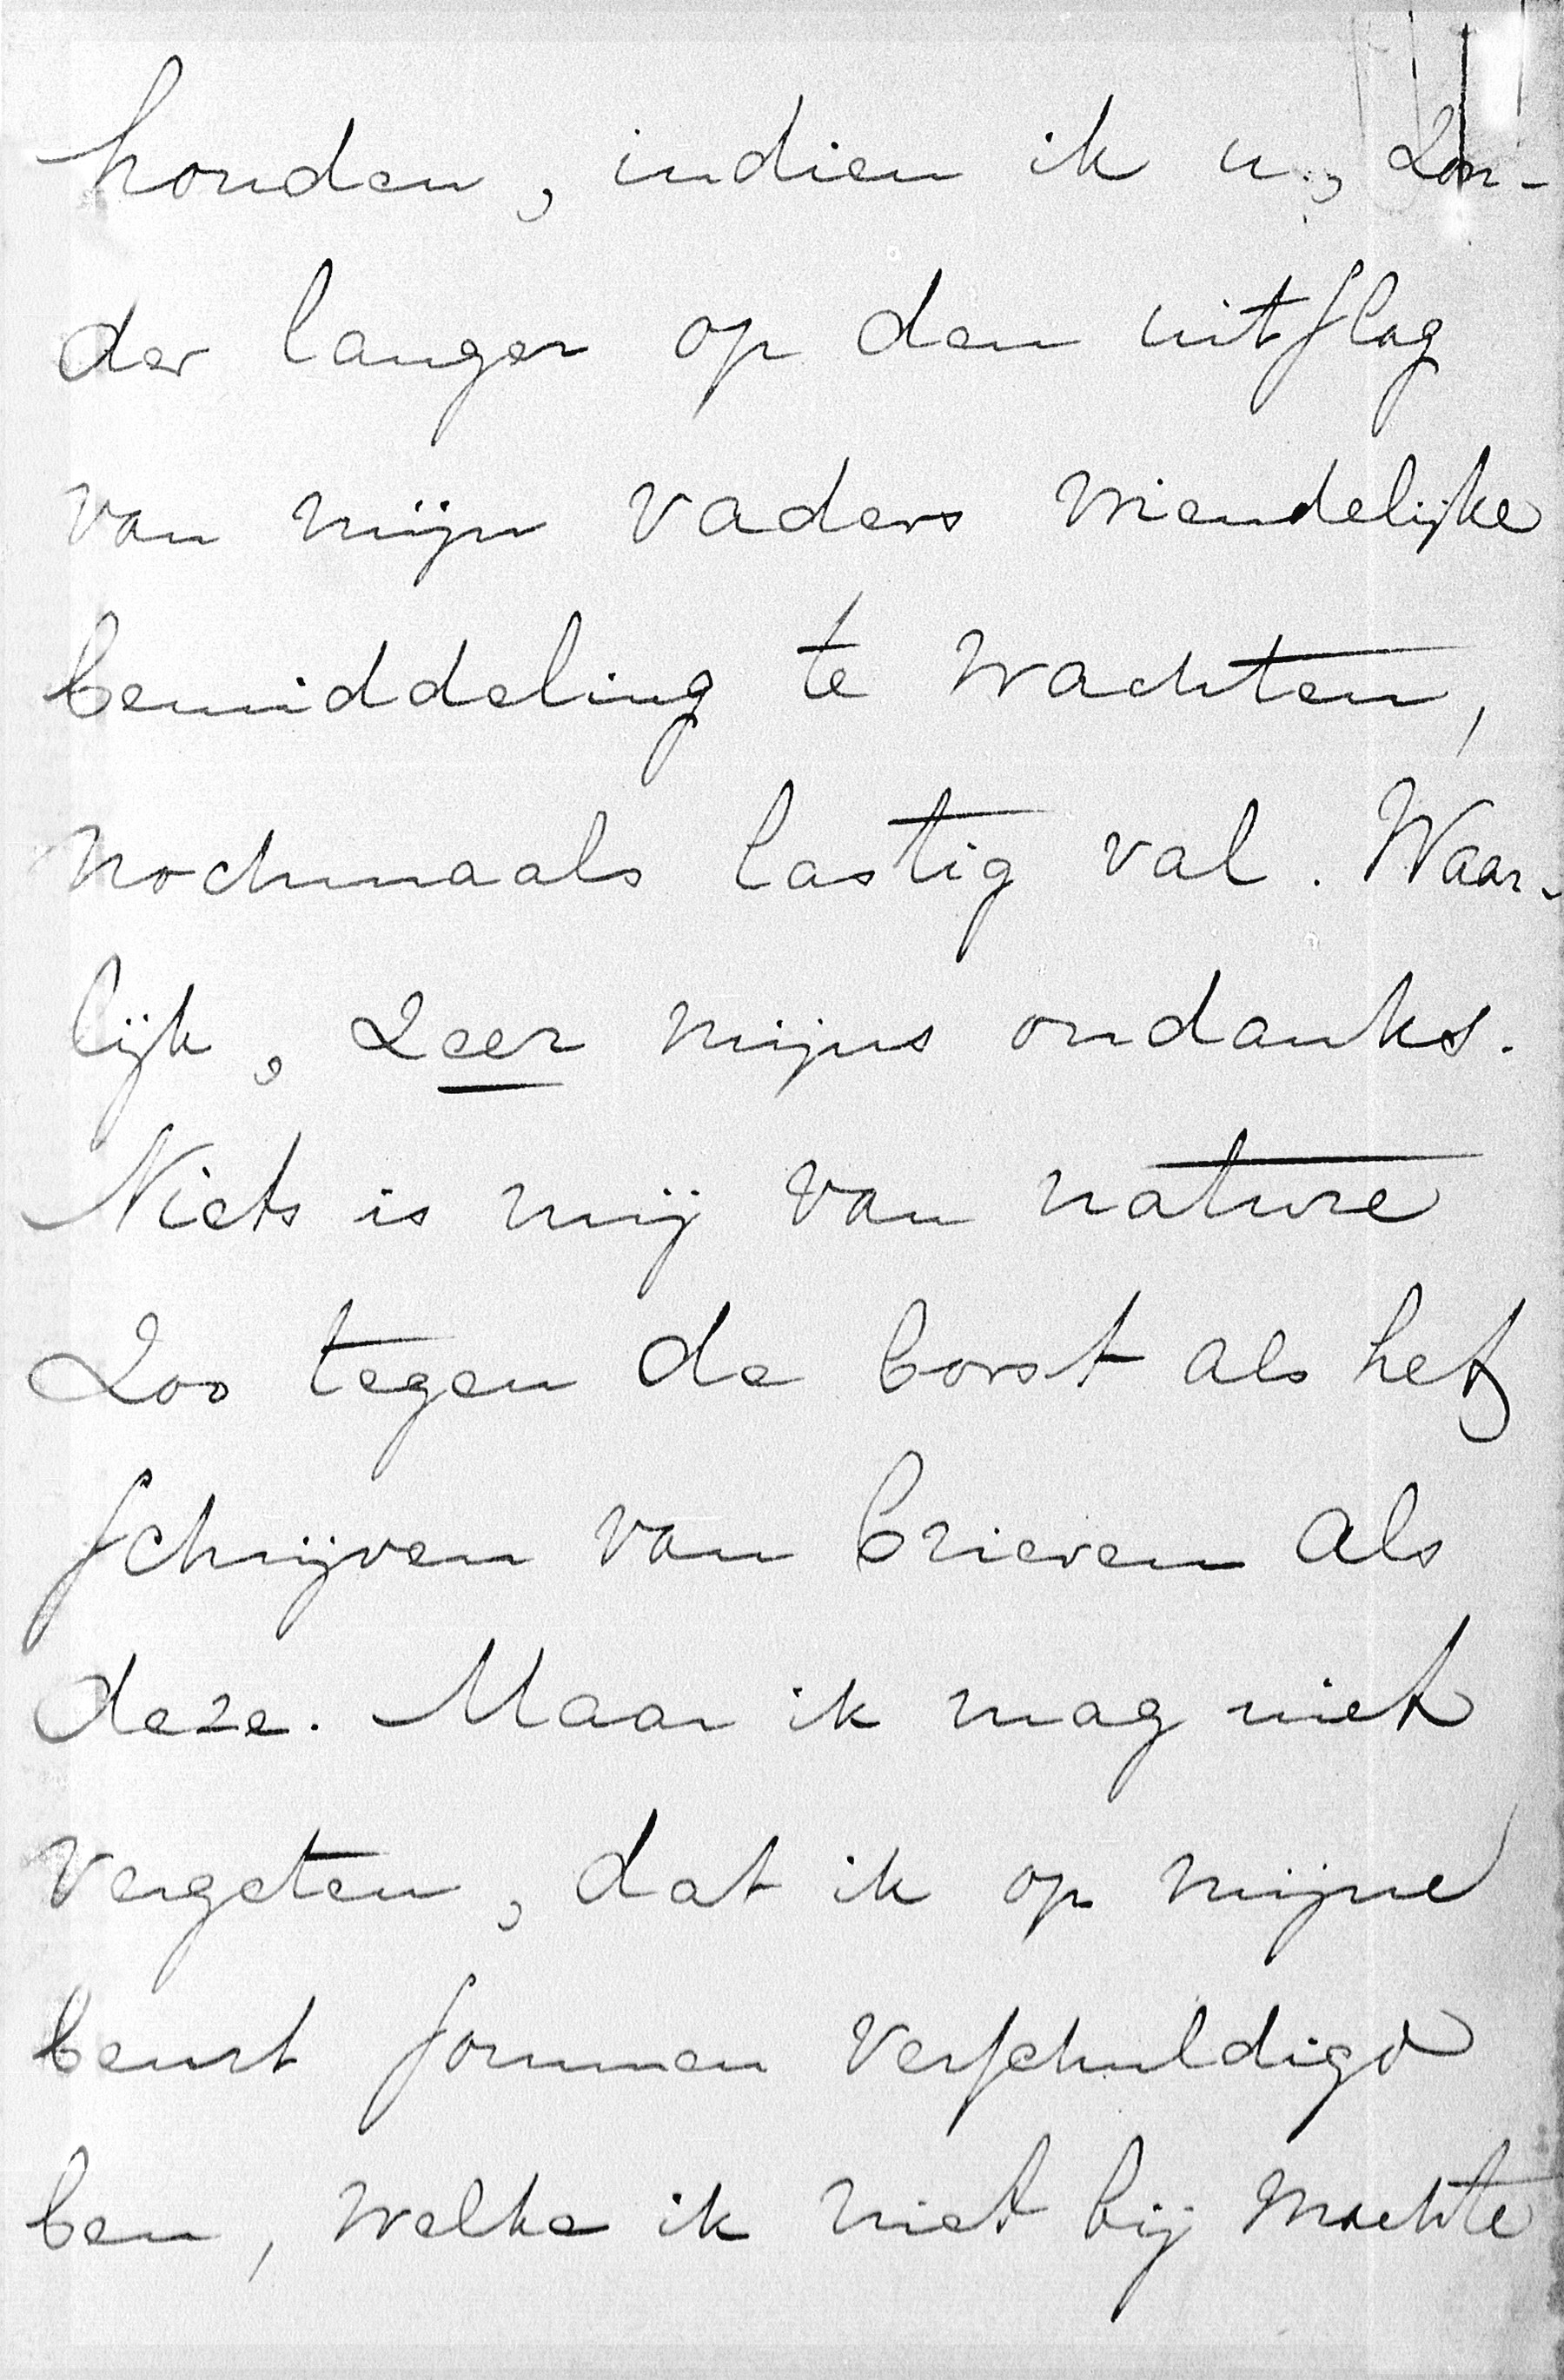 houden, indien ik u, zon-
der langer op den uitslag
van mijn vaders vriendelijke
bemiddeling te wachten,
nochmaals lastig val. Waar-
lijk, zeer mijns ondanks.
Niets is mij van nature
zoo tegen de borst als het
schrijven van brieven als
deze. Maar ik mag niet
vergeten, dat ik op mijne
beurt sommen verschuldigd
ben, welke ik niet bij machte